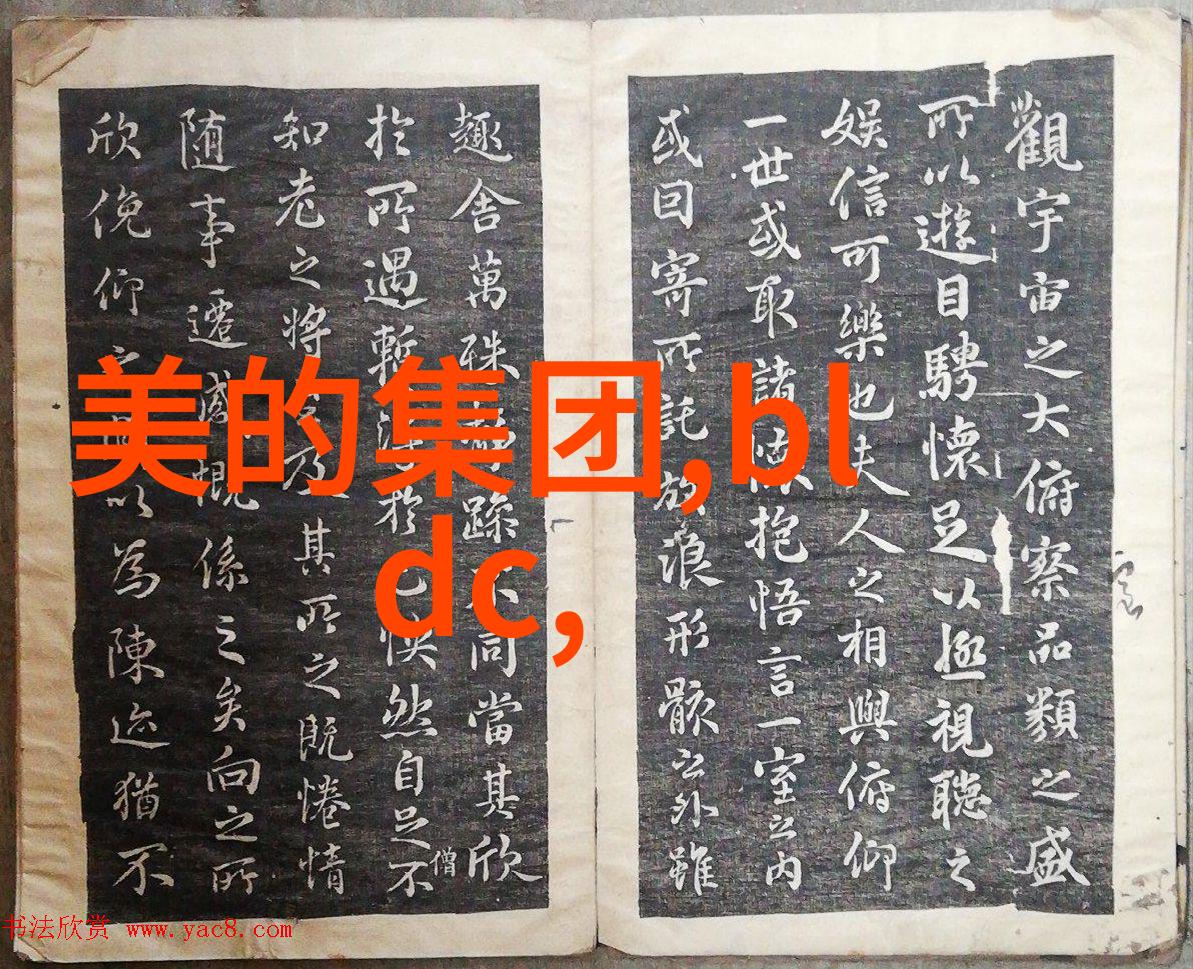 觀宇宙之大俯察品類之盛
所以遊目騁懷足以極視聽之
娛信可樂也夫人之相與俯仰
一世或取諸懷抱悟言一室之内
或因寄所託放浪形骸之外雖
趣舍萬殊躁不同當其欣
於所遇暫得於己怏然自足不
僧
知老之將及其所之既惓情
随事遷感慨係之矣向之所
欣俛仰之以為陳迹猶不
美的集团,bl
dc,
书法欣赏 www.yac8.com